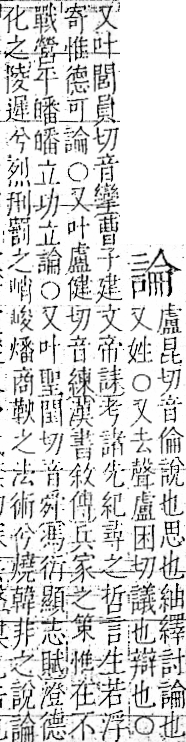 論
盧昆切音倫說也思也紬繹討論也
又姓○又去聲盧困切議也辯也○
又叶閭員切音攣曹子建文帝誄考諸先紀尋之哲言生若浮
寄惟德可論○又叶盧健切音練漢書敘傳兵家之策惟在不
戰營平皤皤立功立論○又叶聖閏切音舜馮衍顯志賦澄德
化之陵遲兮烈刑罰之峭峻燔商鞅之法術兮燒韓非之說論